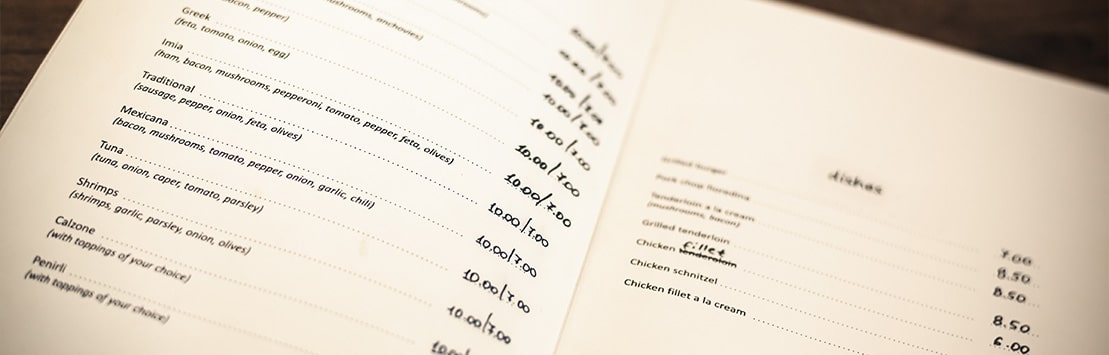 bacon, pepper)
mushrooms, anchovies)
Greek
(feta, tomato, onion, egg)
Imia
(ham, bacon, mushrooms, pepperoni, tomato, pepper, feta, olives)
Traditional
(sausage, pepper, onion, feta, olives)
Mexicana
(bacon, mushrooms, tomato, pepper, onion, garlic, chili)
Tuna
(tuna, onion, caper, tomato, parsley)
Shrimps
(shrimps, garlic, parsley, onion, olives)
Calzone
(with toppings of your choice)
Penirli
(with toppings of your choice)
10.00/7.00
10.00/7.00
10.00/7.00
10.00/7.00
10.00/7.00
10.00/7.00
10.00/7.00
10.00/7.00
10.00/7.00
10.00
dishes
Grilled burger
Pork chop
Tenderloin a la cream
(mushrooms, bacon)
Grilled tenderloin
Chicken fillet tenderoloin
Chicken schnitzel
Chicken fillet a la cream
7.00
8.50
8.50
8.50
6.00